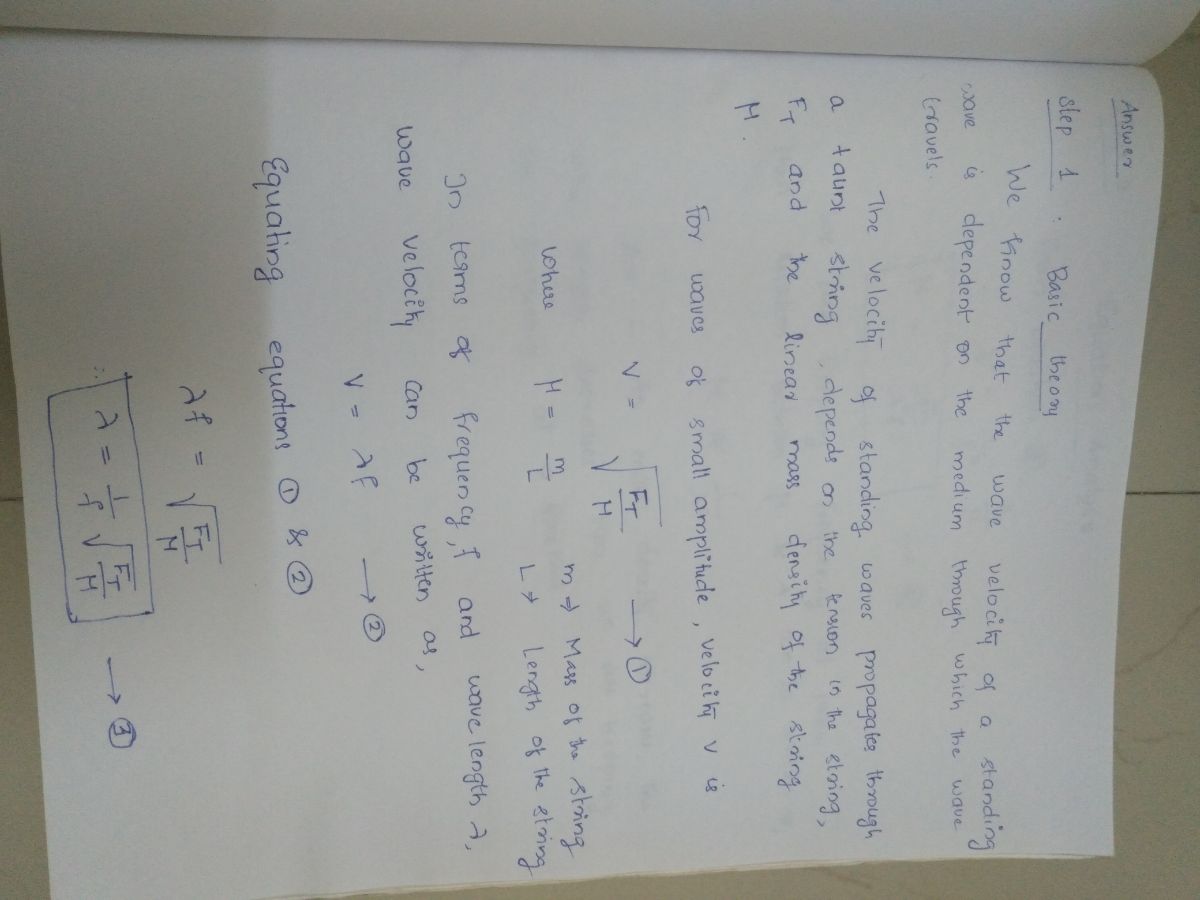 Answer
Step 1 : Basic theory
We know that the wave velocity of a standing
wave is dependent on the medium through which the wave
travels.
The velocity of standing waves propagates through
a taunt string, depends on the tension in the string,
F_T and the linear mass density of the string
μ.
For waves of small amplitude, velocity v is
V = √(F_T/μ) → ①
where μ = m/L m → Mass of the string
L → Length of the string
In terms of frequency, f and wavelength λ,
wave velocity can be written as,
V = λf → ②
Equating equations ① & ②
λf = √(F_T/μ)
∴ λ = 1/f √(F_T/μ) → ③